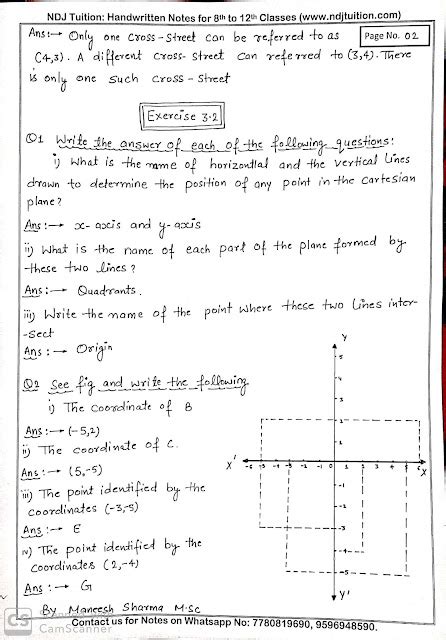 NDJ Tuition: Handwritten Notes for 8th to 12th Classes (www.ndjtuition.com)
Page No. 02
Ans:→ Only one cross-street can be referred to as
(4,3). A different cross-street can referred to (3,4). There
is only one such cross-street
Exercise 3.2
Q1 Write the answer of each of the following questions:
i) What is the name of horizontlal and the vertical lines
drawn to determine the position of any point in the cartesian
plane?
Ans:→ x-axis and y-axis
ii) What is the name of each part of the plane formed by
these two lines?
Ans:→ Quadrants.
iii) Write the name of the point where these two lines inter-
-sect
Ans:→ Origin
Q2 See fig and write the following
i) The coordinate of B
Ans:→ (-5,2)
ii) The coordinate of C.
Ans:→ (5,-5)
iii) The point identified by the
coordinates (-3,-5)
Ans:→ E
iv) The point identified by the
coordinates (2,-4)
Ans:→ G
Y
5
4
3
2
1
X' -6 -5 -4 -3 -2 -1 0 1 2 3 4 5 6 X
-1
-2
-3
-4
-5
Y'
By Maneesh Sharma M.Sc
CS
CamScanner
Contact us for Notes on Whatsapp No: 7780819690, 9596948590.